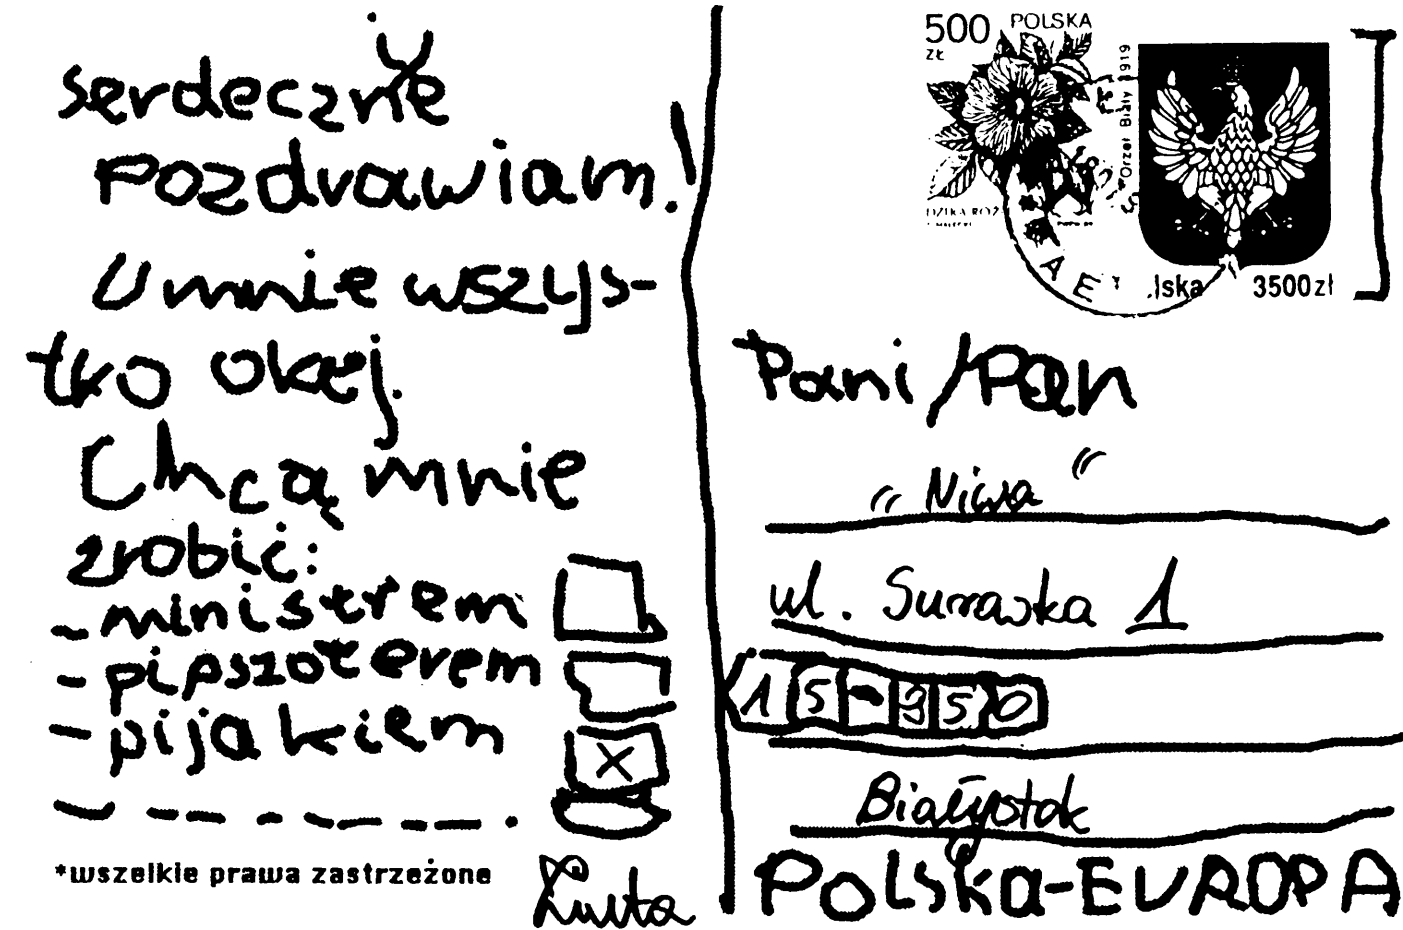 serdecznie
pozdrawiam!
U mnie wszys-
tko okej.
Chcą mnie
zrobić:
- ministrem
- pipszoterem
- pijakiem
*wszelkie prawa zastrzeżone
500 zł
POLSKA
DZIKA RÓŻ
Orzeł Biały 1919
lska 3500 zł
Pani/Pan
"Niwa"
ul. Suraska 1
15-350
Białystok
POLSka-EUROPA